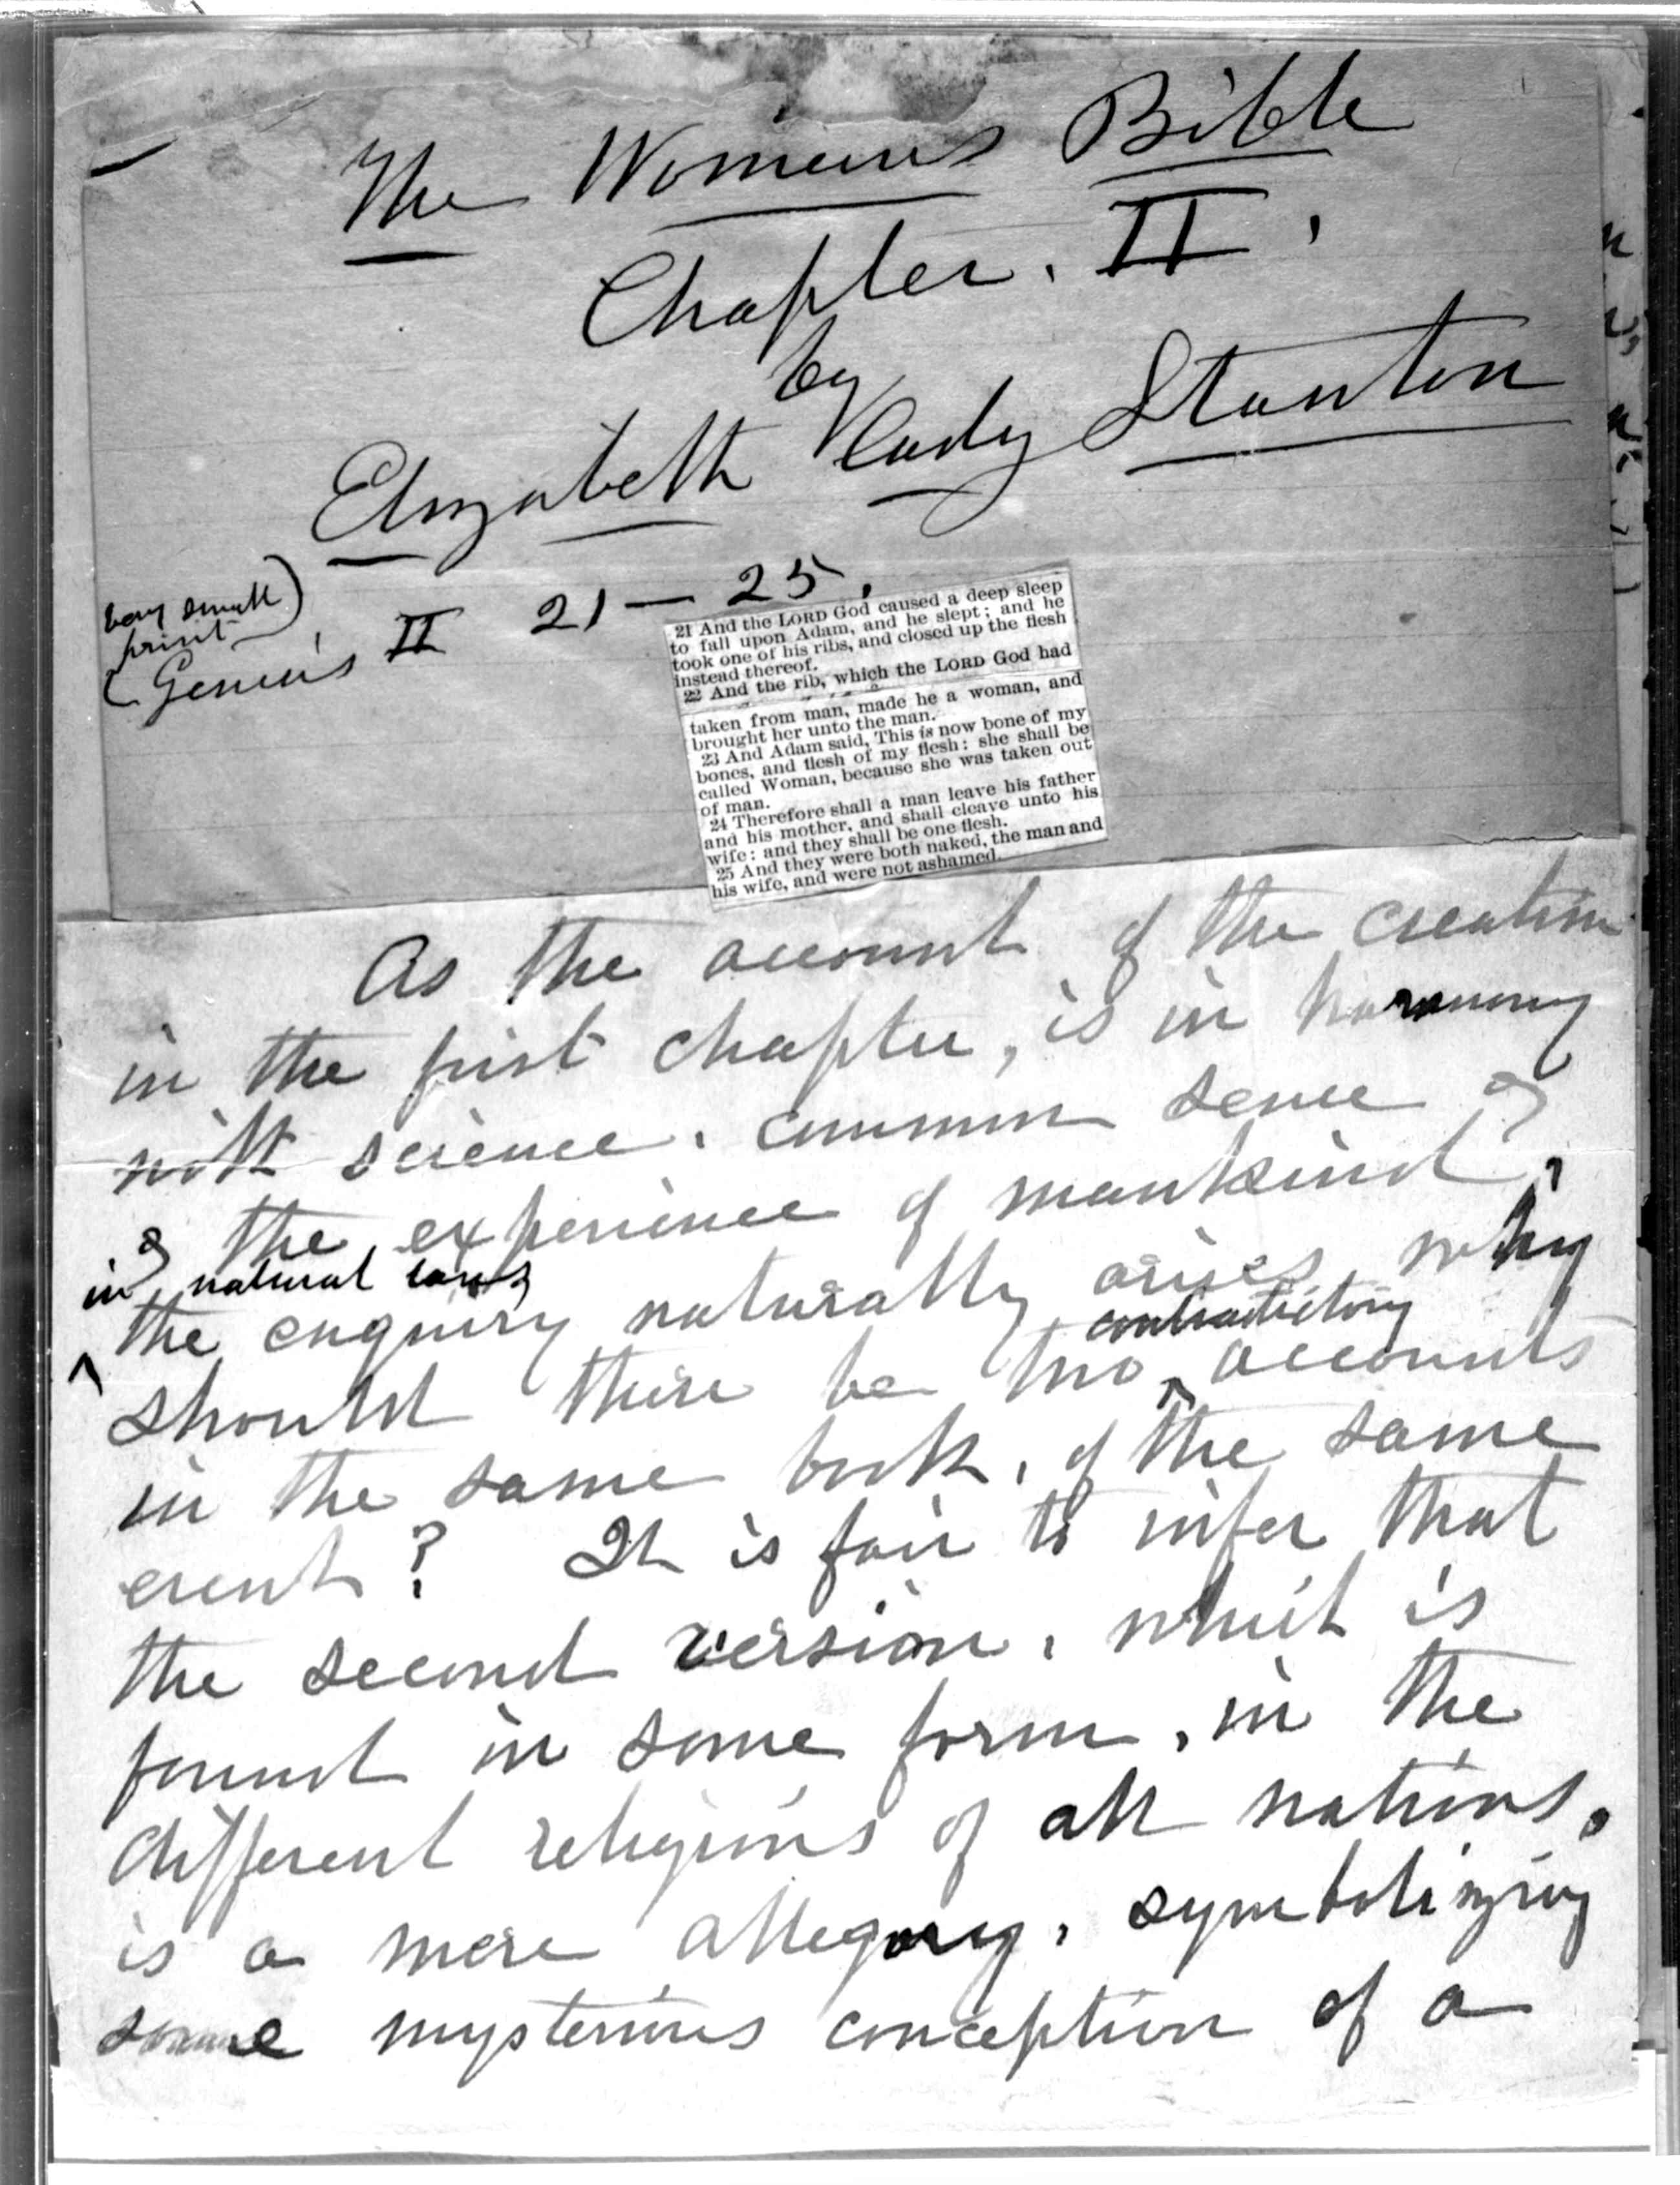 The Woman's Bible
Chapter. II.
by
Elizabeth Cady Stanton
very small
print
(Genesis II 21—25.
21 And the LORD God caused a deep sleep
to fall upon Adam, and he slept; and he
took one of his ribs, and closed up the flesh
instead thereof.
22 And the rib, which the LORD God had
taken from man, made he a woman, and
brought her unto the man.
23 And Adam said, This is now bone of my
bones, and flesh of my flesh: she shall be
called Woman, because she was taken out
of man.
24 Therefore shall a man leave his father
and his mother, and shall cleave unto his
wife: and they shall be one flesh.
25 And they were both naked, the man and
his wife, and were not ashamed.
As the account of the creation
in the first chapter, is in harmony
with science, common sense &
& the experience of mankind,
in natural laws
the enquiry naturally arises, why
contradictory
should there be two ^ accounts
in the same book, of the same
event? It is fair to infer that
the second version, which is
found in some form, in the
different religions of all nations,
is a mere allegory, symbolizing
some mysterious conception of a